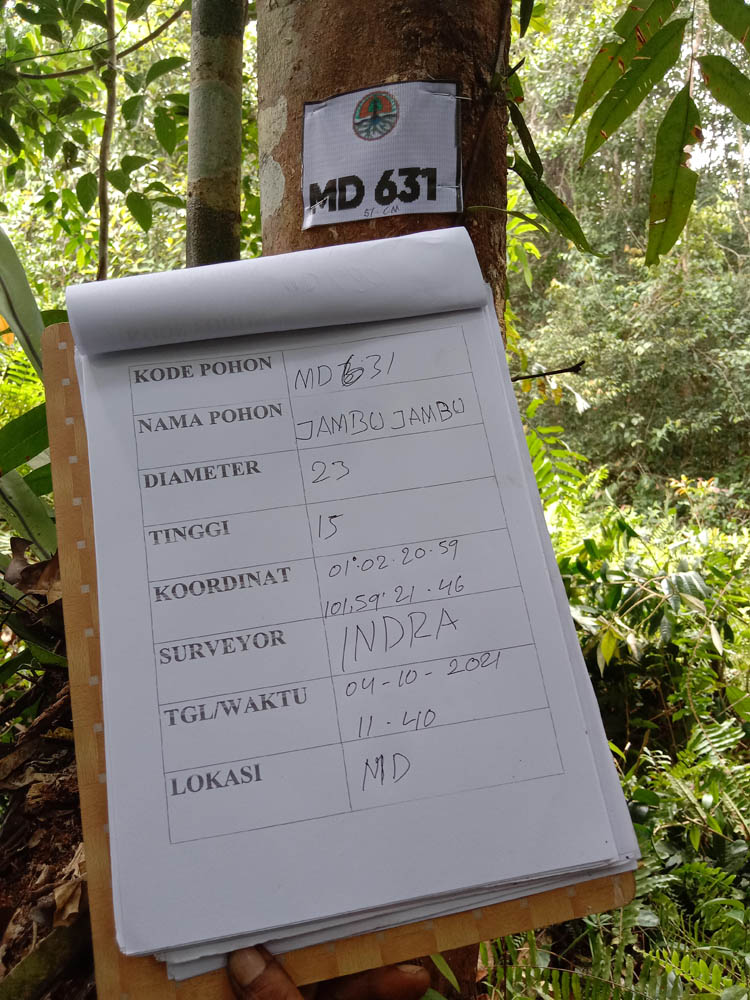 MD 631
51 CM
KODE POHON MD 631
NAMA POHON JAMBU JAMBU
DIAMETER 23
TINGGI 15
KOORDINAT 01°.02.20.59
101,59'.21.46
SURVEYOR INDRA
TGL/WAKTU 04-10-2021
11.40
LOKASI MD